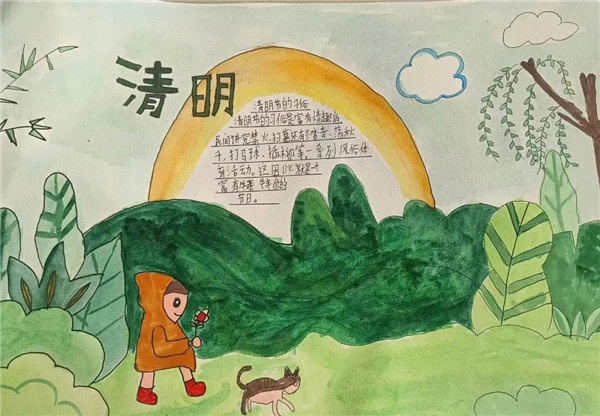 清明
清明节的习俗
清明节的习俗是富有情趣的
民间讲究禁火、扫墓还有踏青、荡秋
千、打马球、插柳等一系列风俗体
育活动。这因此就是个
富有特色的
节日。